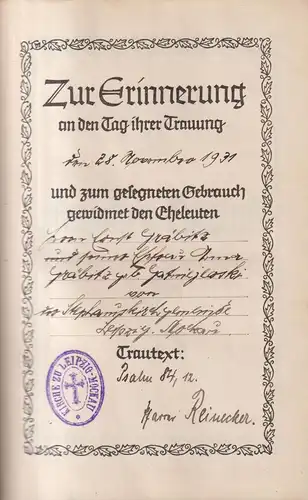 Zur Erinnerung
an den Tag ihrer Trauung
den 28. November 1931
und zum gesegneten Gebrauch
gewidmet den Eheleuten
Herrn Ernst Gräbitz
und seiner Ehefrau
Gräbitz geb.
von
der Stephanuskirchgemeinde
Leipzig-Mockau
Trautext:
Psalm 84, 12.
Pfarrer Reinecker.
KIRCHE ZU LEIPZIG-MOCKAU